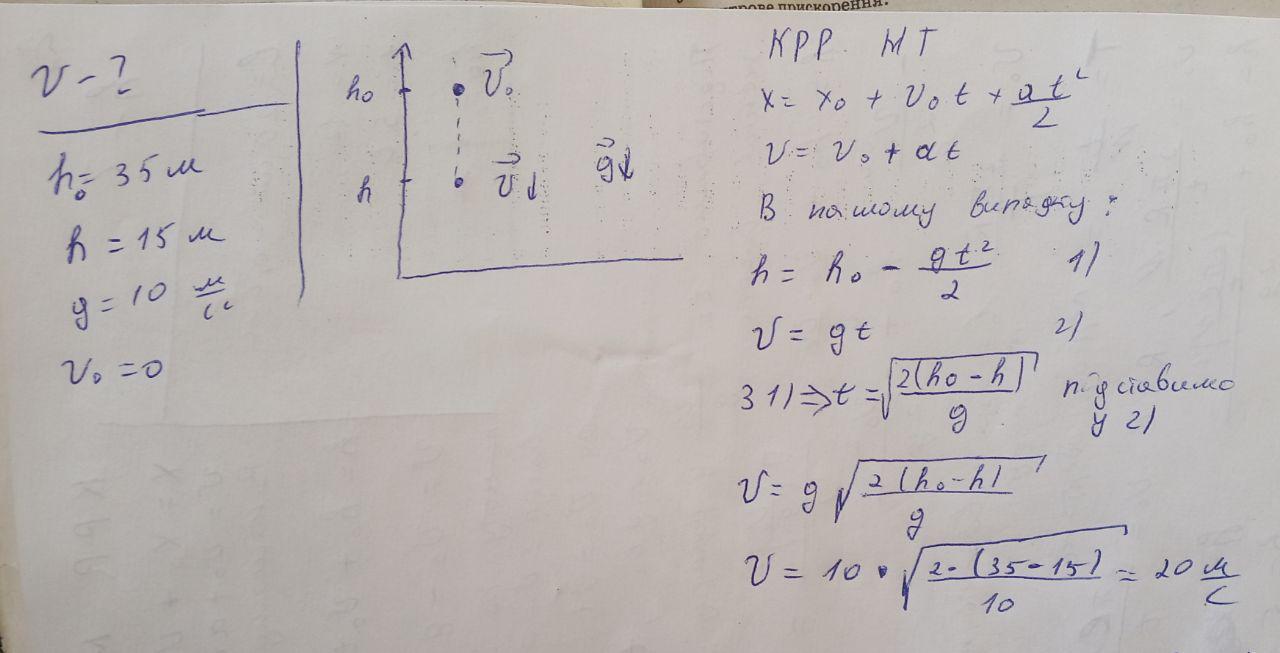 трове прискорення.
v - ?
h₀ = 35 м
h = 15 м
g = 10 м/с²
v₀ = 0
h₀
v⃗₀
h
v⃗ ↓
g⃗ ↓
КРР МТ
x = x₀ + v₀t + at²/2
v = v₀ + at
В нашому випадку:
h = h₀ - gt²/2 1)
v = gt 2)
З 1) ⇒ t = √(2(h₀ - h)/g) підставимо
у 2)
v = g √(2(h₀ - h)/g)
v = 10 · √(2·(35 - 15)/10) = 20 м/с